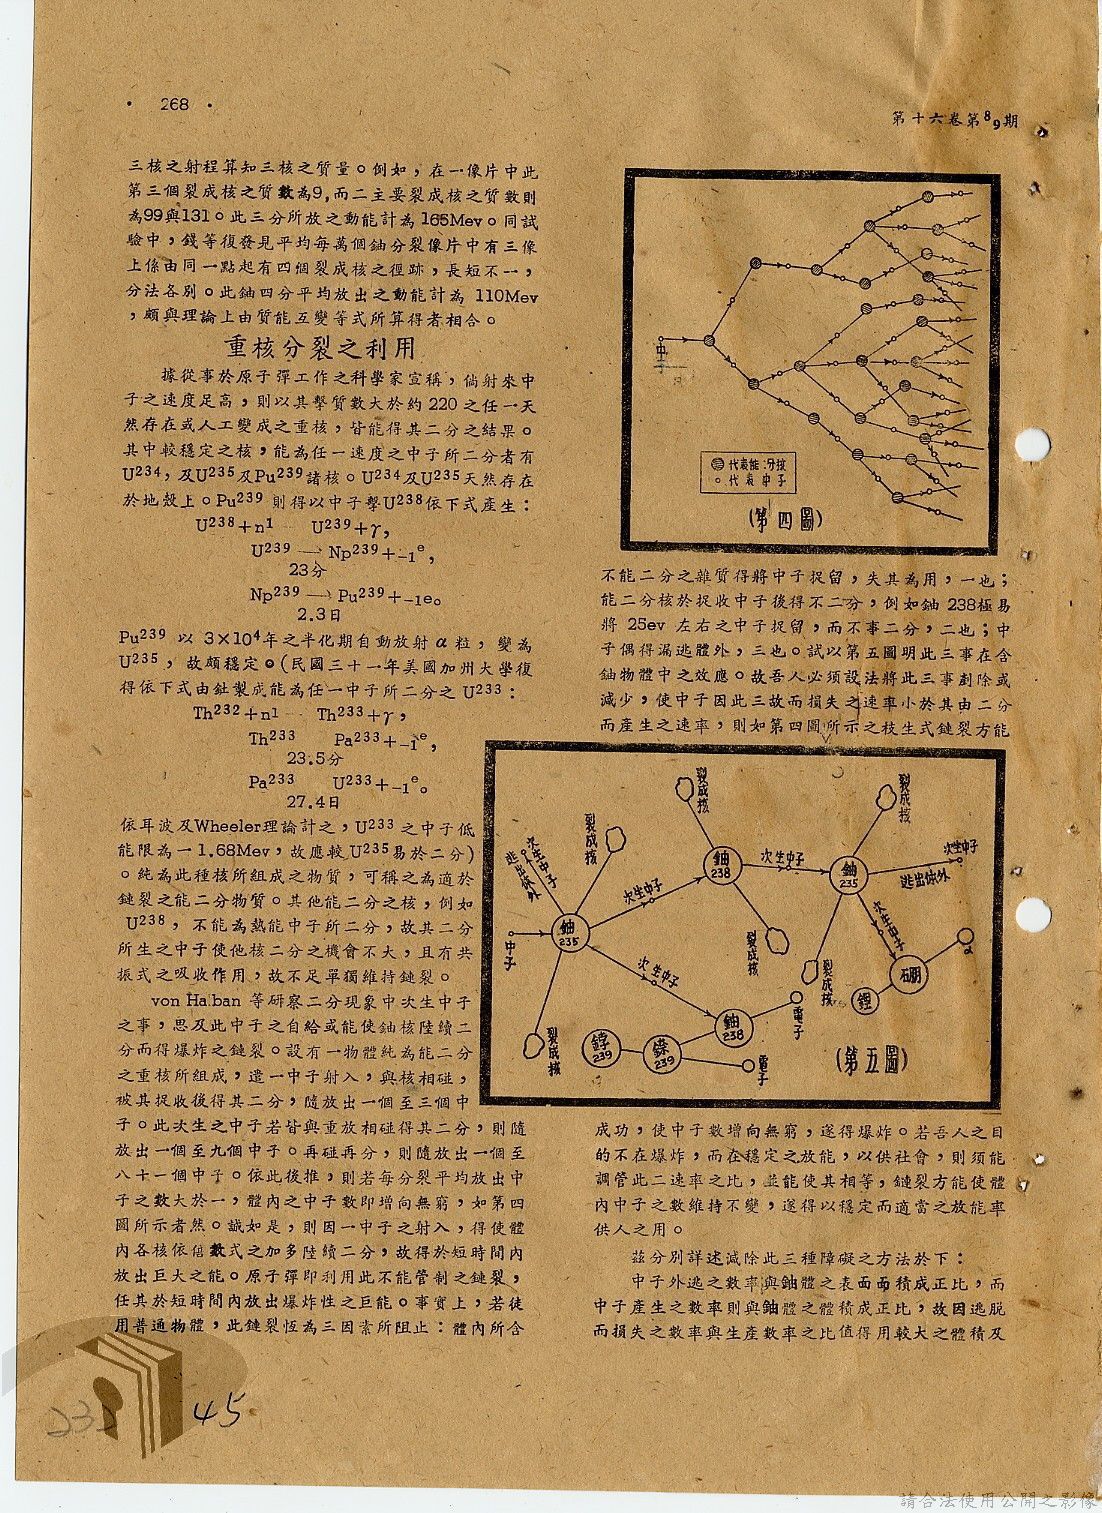 • 268 •
第十六卷第8 9期
三核之射程算知三核之質量。例如,在一像片中此
第三個裂成核之質數為9,而二主要裂成核之質數則
為99與131。此三分所放之動能計為165Mev。同試
驗中,錢等復發見平均每萬個鈾分裂像片中有三像
上係由同一點起有四個裂成核之徑跡,長短不一,
分法各別。此鈾四分平均放出之動能計為 110Mev
,頗與理論上由質能互變等式所算得者相合。
重核分裂之利用
據從事於原子彈工作之科學家宣稱,倘射來中
子之速度足高,則以其擊質數大於約 220 之任一天
然存在或人工變成之重核,皆能得其二分之結果。
其中較穩定之核,能為任一速度之中子所二分者有
U234, 及U235及Pu239諸核。U234及U235天然存在
於地殼上。Pu239 則得以中子擊U238依下式產生:
U238+n1 U239+γ,
U239 → Np239+-1e,
23分
Np239 → Pu239+-1e。
2.3日
Pu239 以 3×104年之半化期自動放射 α 粒,變為
U235,故頗穩定。(民國三十一年美國加州大學復
得依下式由釷製成能為任一中子所二分之 U233:
Th232+n1 Th233+γ,
Th233 Pa233+-1e,
23.5分
Pa233 U233+-1e。
27.4日
依耳波及Wheeler理論計之,U233 之中子低
能限為一1.68Mev,故應較U235易於二分)
。純為此種核所組成之物質,可稱之為適於
鏈裂之能二分物質。其他能二分之核,例如
U238,不能為熱能中子所二分,故其二分
所生之中子使他核二分之機會不大,且有共
振式之吸收作用,故不足單獨維持鏈裂。
von Halban 等研察二分現象中次生中子
之事,思及此中子之自給或能使鈾核陸續二
分而得爆炸之鏈裂。設有一物體純為能二分
之重核所組成,遣一中子射入,與核相碰,
被其捉收後得其二分,隨放出一個至三個中
子。此次生之中子若皆與重放相碰得其二分,則隨
放出一個至九個中子。再碰再分,則隨放出一個至
八十一個中子。依此後推,則若每分裂平均放出中
子之數大於一,體內之中子數即增向無窮,如第四
圖所示者然。誠如是,則因一中子之射入,得使體
內各核依倍數式之加多陸續二分,故得於短時間內
放出巨大之能。原子彈即利用此不能管制之鏈裂,
任其於短時間內放出爆炸性之巨能。事實上,若徒
用普通物體,此鏈裂恆為三因素所阻止:體內所含
中子
代表能二分核
代表中子
(第四圖)
不能二分之雜質得將中子捉留,失其為用,一也;
能二分核於捉收中子後得不二分,例如鈾 238極易
將 25ev 左右之中子捉留,而不事二分,二也;中
子偶得漏逃體外,三也。試以第五圖明此三事在含
鈾物體中之效應。故吾人必須設法將此三事剷除或
減少,使中子因此三故而損失之速率小於其由二分
而產生之速率,則如第四圖所示之枝生式鏈裂方能
中子
鈾 235
次生中子
逃出体外
裂成核
裂成核
次生中子
次生中子
鈾 238
裂成核
裂成核
次生中子
鈾 235
裂成核
裂成核
次生中子
逃出体外
次生中子
硼
α
鋰
鈾 238
電子
鎿 239
電子
鈈 239
(第五圖)
成功,使中子數增向無窮,遂得爆炸。若吾人之目
的不在爆炸,而在穩定之放能,以供社會,則須能
調管此二速率之比,並能使其相等,鏈裂方能使體
內中子之數維持不變,遂得以穩定而適當之放能率
供人之用。
茲分別詳述減除此三種障礙之方法於下:
中子外逃之數率與鈾體之表面面積成正比,而
中子產生之數率則與鈾體之體積成正比,故因逃脫
而損失之數率與生產數率之比值得用較大之體積及
45
232
請合法使用公開之影像